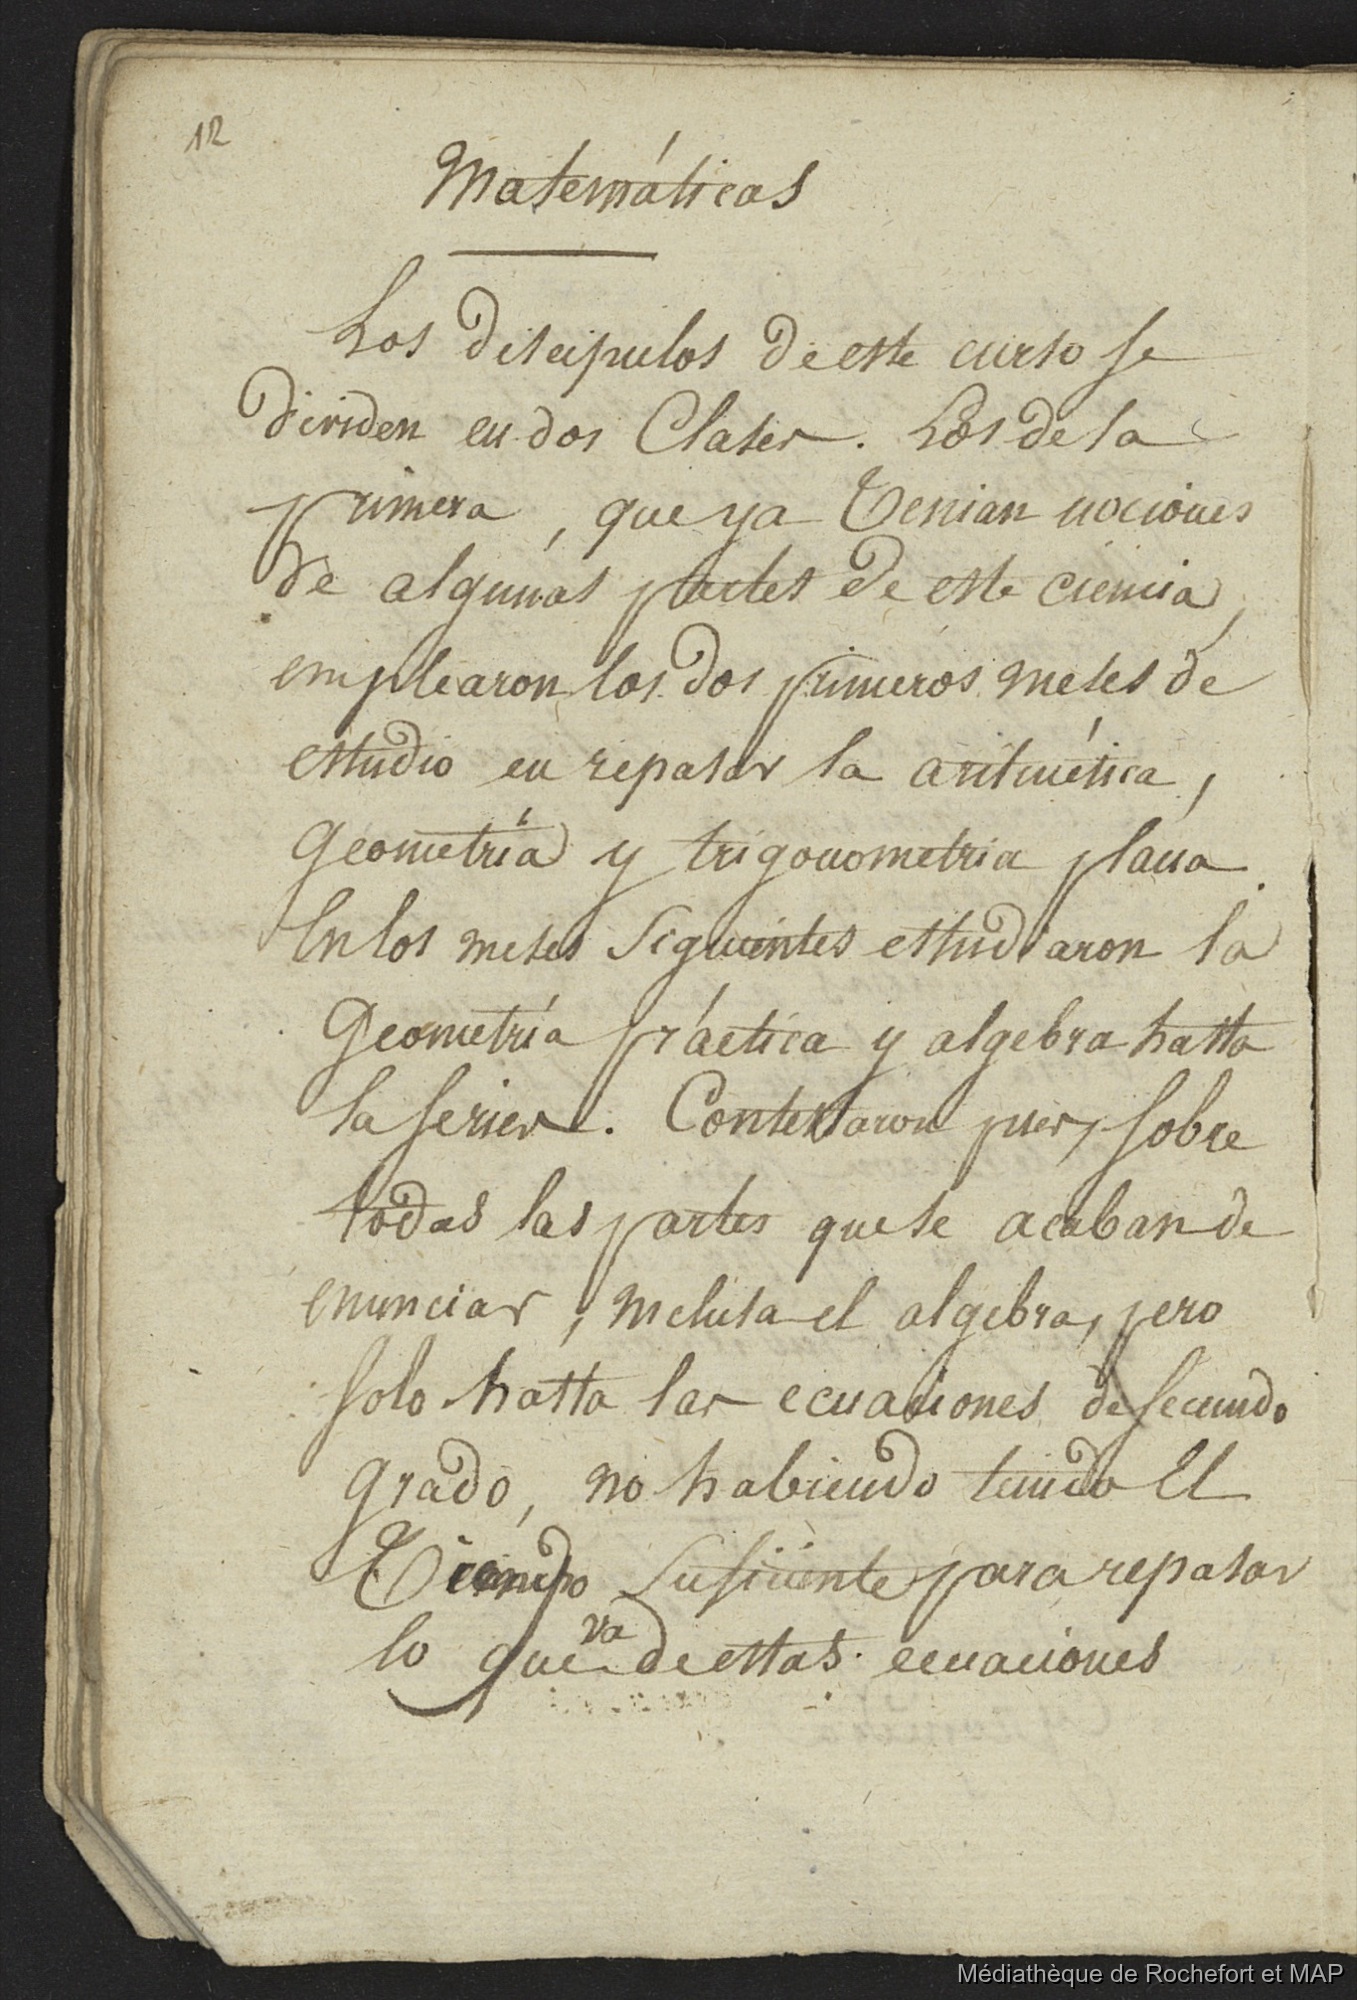 12
Matemáticas
Los discipulos de este curso se
dividen en dos Clases. Los de la
primera, que ya Tenian nociones
de algunas partes de este ciencia,
emplearon los dos primeros meses de
estudio en repasar la aritmética,
Geometría y trigonometria plana.
En los meses siguientes estudiaron la
Geometría práctica y algebra hasta
la series. Contestaron pues, sobre
todas las partes que se acaban de
enunciar, inclusa el algebra, pero
solo hasta las ecuaciones de secundo
grado, no habiendo tenido El
Tiempo suficiente para repasar
lo que va de estas ecuaciones
Médiathèque de Rochefort et MAP